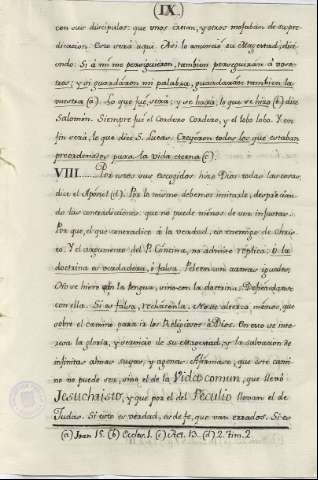 (IX)
con sus discipulos: que unos creian, y otros mofaban de su pre-
dicacion. Esto verá aqui. Asi lo anunció su Magestad, dici-
endo: Si á mi me persiguieron, tambien perseguirán á voso-
tros; y si guardáron mi palabra, guardarán tambien la
vuestra (a). Lo que fue, será; y se hará, lo que se hizo (b) dice
Salomón. Siempre fué el Cordero Cordero, y el lobo lobo. Y en
fin verá, lo que dice S. Lucas: Creyéron todos los que estaban
preordenados para la vida eterna (c).
VIII...... Por estos sus escogidos hizo Dios todas las cosas,
dice el Apóstol (d). Por lo mismo debemos imitarle, desprecian-
do las contradiciones, que no puede ménos de ser injustas.
Por que, el que contradice á la verdad, es enemigo de Chris-
to. Y el argumento del P. Cóncina, no admite réplica: ó la
doctrina es verdadera, ó falsa. Pelèen con armas iguales,
No se hiera con la lengua, sino con la doctrina. Defiendanse
con ella. Si es falsa, rechácenla. No se altera ménos, que
sobre el camino para ir los Religiosos á Dios. En esto se inte-
resa la gloria, y servicio de su Magestad, y la salvacion de
infinitas almas suyas, y agenas. Afirmase, que este cami-
no no puede ser, sino el de la Vida comun, que llevó
Jesuchristo, y que por el del Peculio llevan el de
Judas. Si esto es verdad, es de fe, que van errados. Si es
(a) Joan 15. (b) Ecclex. 1. (c) Act. 13. (d) 2. Tim. 2.